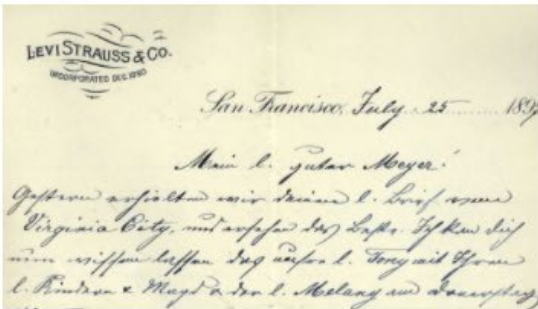 LEVI STRAUSS & CO.
INCORPORATED DEC. 1890
San Francisco, July 25 189
Mein l. guter Meyer!
Gestern erhielten wir deinen l. Brief von
Virginia City, und ersehen das Beste. Ich kan dich
nun wissen lassen das unsre l. Tony mit Ihren
l. Kindern & Magd & der l. Melang am Donerstag